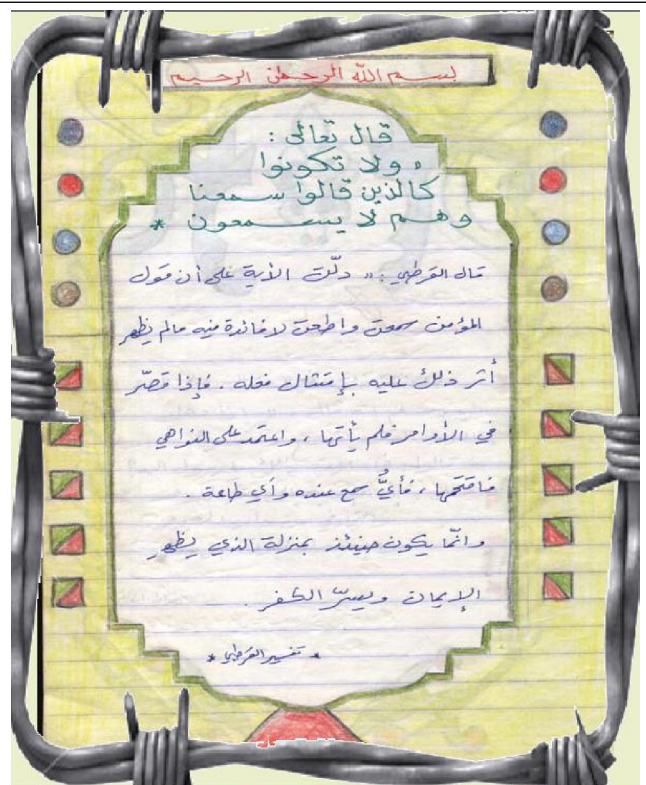 بسم الله الرحمن الرحيم
قال تعالى :
" ولا تكونوا
كالذين قالوا سمعنا
وهم لا يسمعون *
قال القرطبي : " دلّت الآية على أن قول
المؤمن سمعت واطعت لا فائدة فيه مالم يظهر
أثر ذلك عليه بإمتثال فعله . فإذا قصّر
في الأوامر فلم يأتها ، واعتمد على النواهي
فاقتحمها ، فأيُّ سمع عنده وأي طاعة .
وانّما يكون حينئذ بمنزلة الذي يظهر
الإيمان ويسرّ الكفر .
* تفسير القرطبي *